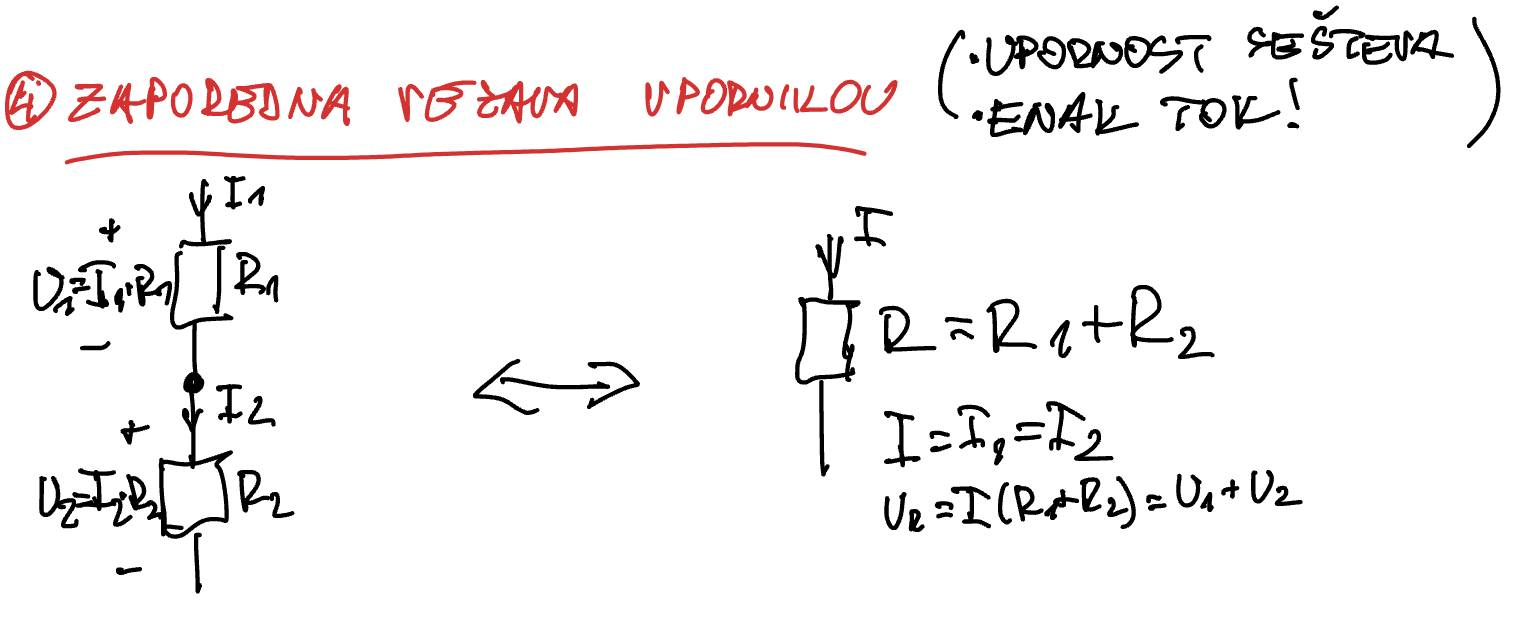 ④ ZAPOREDNA VEZAVA UPORNIKOV
(• UPORNOST SEŠTEVA
• ENAK TOK!)
I1
+
U1=I1·R1
R1
-
I2
+
U2=I2·R2
R2
-
I
R=R1+R2
I=I1=I2
UR=I(R1+R2)=U1+U2